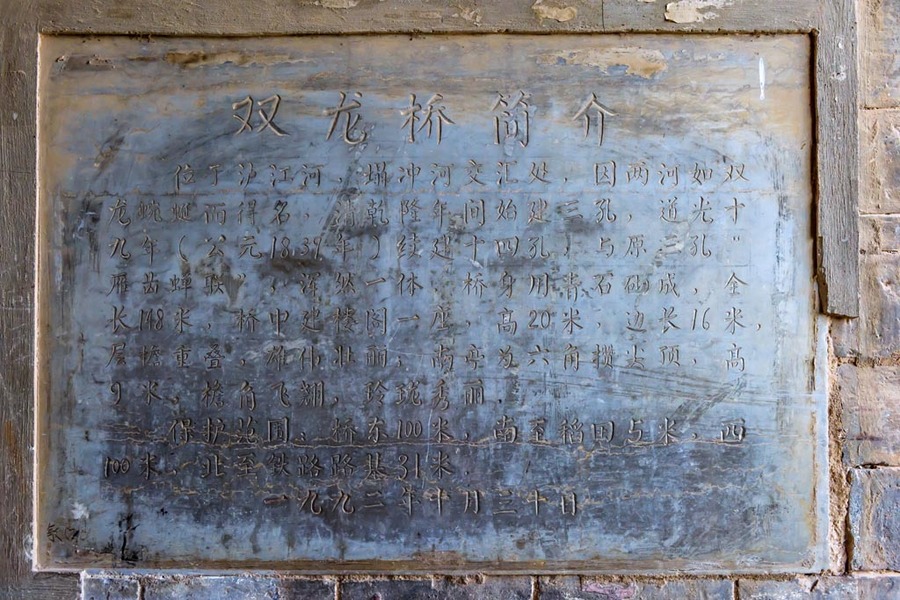 双龙桥简介
位于泸江河、塌冲河交汇处，因两河如双
龙蜿蜒而得名，清乾隆年间始建三孔，道光十
九年（公元1839年）续建十四孔，与原三孔“
雁齿蝉联”，浑然一体。桥身用青石砌成，全
长148米，桥中建楼阁一座，高20米，边长16米，
层檐重叠，雄伟壮丽，南亭为六角攒尖顶，高
9米，檐角飞翘，玲珑秀丽。
保护范围：桥东100米，南至稻田5米，西
100米，北至铁路路基31米。
一九九二年十月三十日